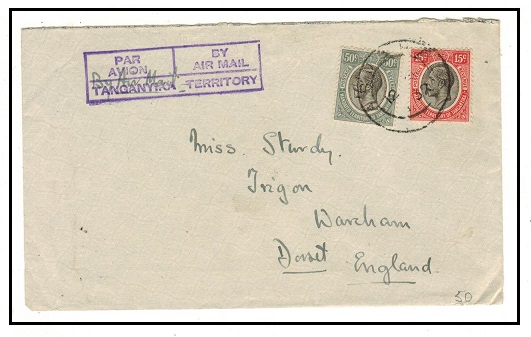 PAR AVION
BY AIR MAIL
TANGANYIKA TERRITORY
By Air Mail
50c 50c
15c 15c
Miss. Sturdy.
Trigon
Wareham
Dorset England.
50